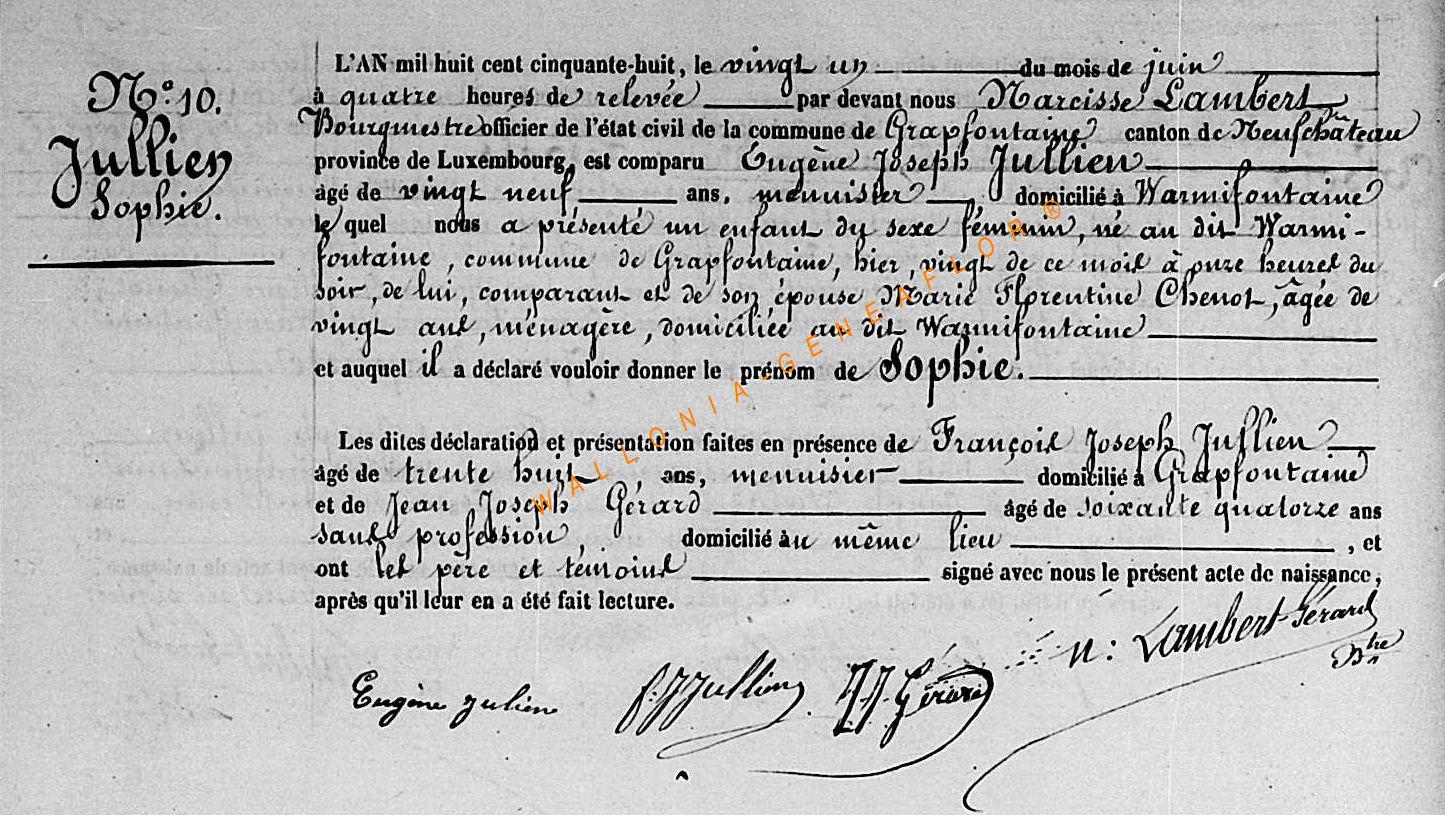 N.º 10.
Jullien
Sophie.
L'AN mil huit cent cinquante-huit, le vingt un du mois de juin
à quatre heures de relevée par devant nous Narcisse Lambert
Bourgmestre officier de l'état civil de la commune de Grapfontaine canton de Neufchâteau
province de Luxembourg, est comparu Eugène Joseph Jullien
âgé de vingt neuf ans, menuisier domicilié à Warmifontaine
le quel nous a présenté un enfant du sexe féminin, né au dit Warmi-
fontaine, commune de Grapfontaine, hier, vingt de ce mois à onze heures du
soir, de lui, comparant et de son épouse Marie Florentine Chenot, âgée de
vingt ans, ménagère, domiciliée au dit Warmifontaine
et auquel il a déclaré vouloir donner le prénom de Sophie.
Les dites déclaration et présentation faites en présence de François Joseph Jullien
âgé de trente huit, ans, menuisier domicilié à Grapfontaine
et de Jean Joseph Gérard âgé de soixante quatorze ans
sans profession, domicilié au même lieu, et
ont les père et témoins signé avec nous le présent acte de naissance,
après qu'il leur en a été fait lecture.
Eugène Julien
f. J Jullien
J J. Gérard
n: Lambert-Gérard
Btre
WALLONIA-GENEAFLOR®